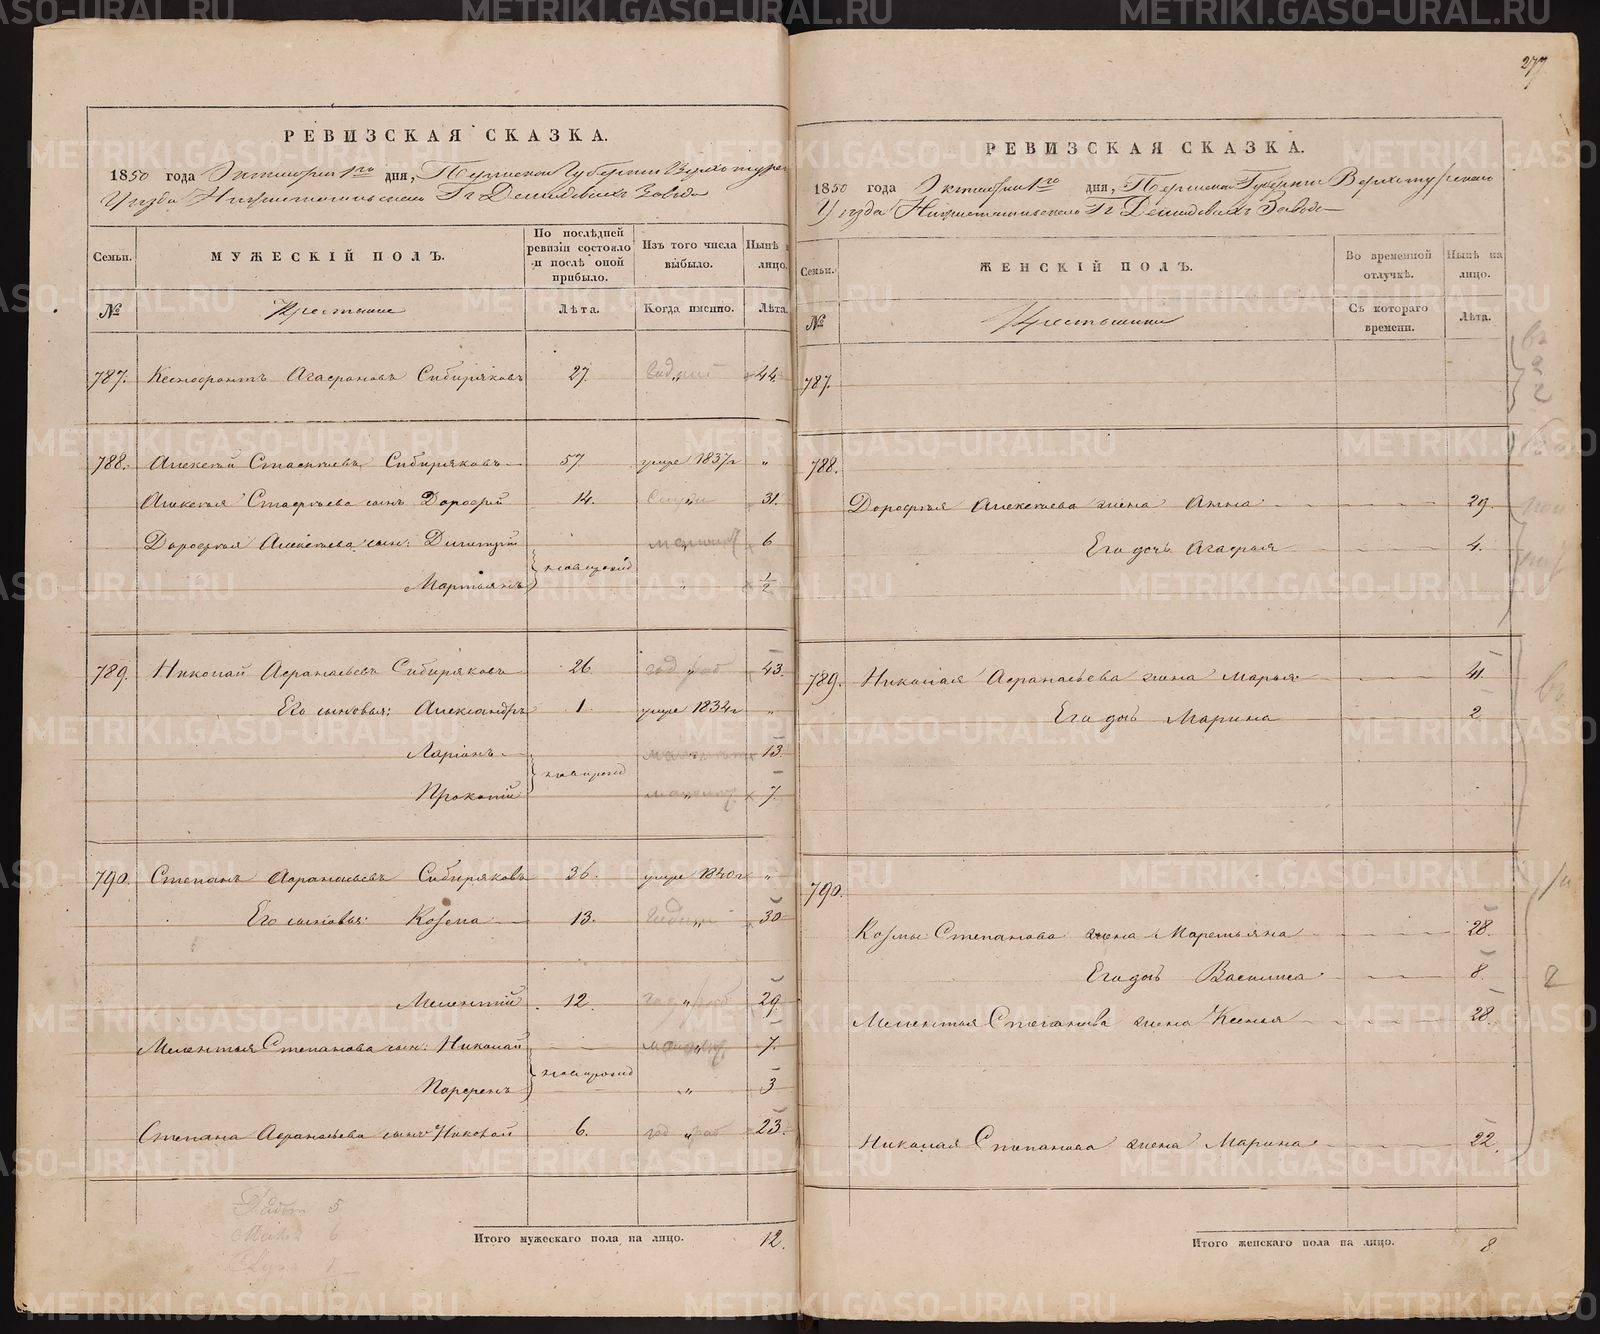 277
РЕВИЗСКАЯ СКАЗКА.
1850 года Октября 1го дня, Пермской Губернии Верхотурска
Уезда Нижнетагильского Гг Демидовых Завода
Семьи. МУЖЕСКІЙ ПОЛЪ. По послѣдней ревизіи состояло и послѣ оной прибыло. Изъ того числа выбыло. Нынѣ на лицо.
№ Крестьяне Лѣта. Когда именно. Лѣта.
787. Ксенофонтъ Агафоновъ Сибиряковъ 27. 44.
788. Алексей Стафеевъ Сибиряковъ 57. умре 1837г "
Алексея Стафеева сынъ Дорофей 14. 31.
Дорофея Алексеева сын: Дмитрий новорожд 6
Мартьянъ " 1/2
789. Николай Афанасьевъ Сибиряковъ 26 43.
Его сыновья: Александръ 1. умре 1834г "
Ларіонъ новорожд 13.
Прокопій 7.
790. Степанъ Афанасьевъ Сибиряковъ 36. умре 1840г "
Его сыновья: Козма 13. 30
Мелентій 12. 29
Мелентья Степанова сын: Николай новорожд 7.
Парфенъ " 3
Степана Афанасьева сынъ Николай 6. 23.
Итого мужескаго пола на лицо. 12.
РЕВИЗСКАЯ СКАЗКА.
1850 года Октября 1го дня, Пермской Губернии Верхотурского
Уезда Нижнетагильского Гг Демидовых Завода
Семьи. ЖЕНСКІЙ ПОЛЪ. Во временной отлучкѣ. Нынѣ на лицо.
№ Крестьянки Съ котораго времени. Лѣта.
787.
788.
Дорофея Алексеева жена Анна 29.
Его дочь Агафья 4.
789. Николая Афанасьева жена Марья 41.
Его дочь Марина 2
790.
Козмы Степанова жена Маремьяна 28.
Его дочь Василиса 8.
Мелентья Степанова жена Ксенья 28.
Николая Степанова жена Марина 22.
Итого женскаго пола на лицо. 8.
METRIKI.GASO-URAL.RU